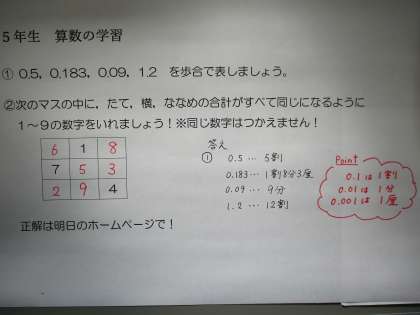 5年生 算数の学習
① 0.5, 0.183, 0.09, 1.2 を歩合で表しましょう。
②次のマスの中に，たて，横，ななめの合計がすべて同じになるように
1～9の数字をいれましょう！※同じ数字はつかえません！
6 1 8
7 5 3
2 9 4
答え
① 0.5… 5割
0.183… 1割8分3厘
0.09… 9分
1.2… 12割
Point
0.1は1割
0.01は1分
0.001は1厘
正解は明日のホームページで！